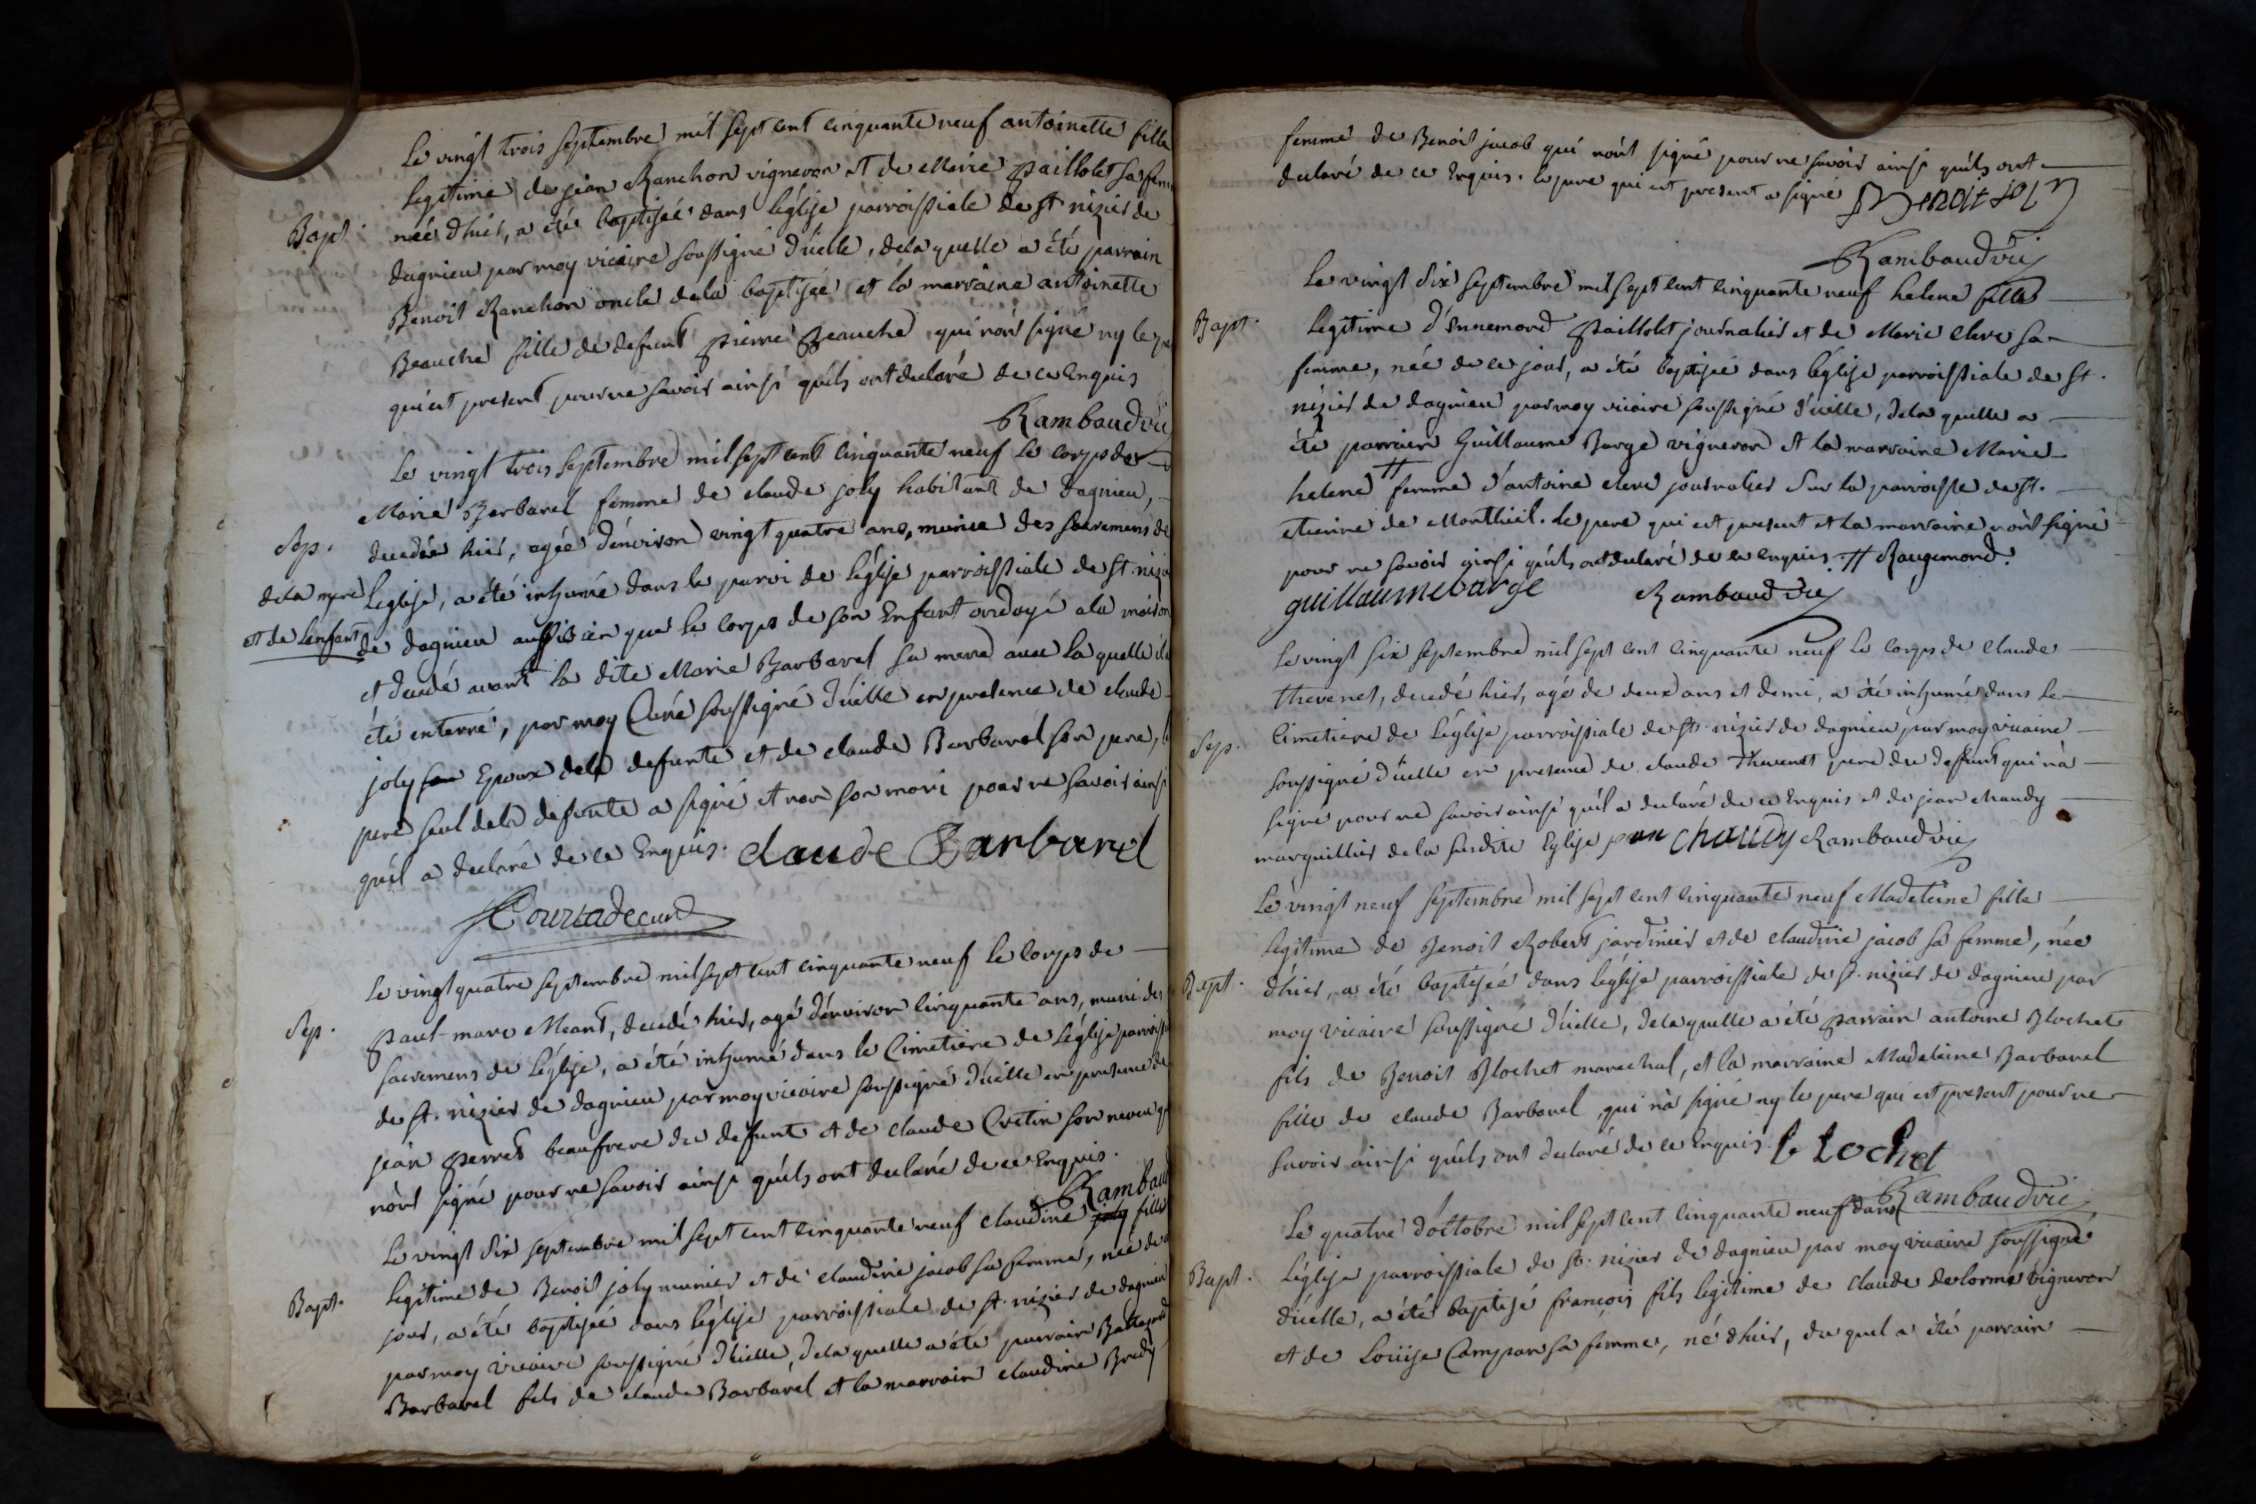 Le vingt trois septembre mil sept cent cinquante neuf antoinette fille
legitime de jean Ranchon vigneron et de Marie Paillolet sa fem
Bapt.
née d'hier, a été baptisée dans l'église parroissiale de st. nizier de
dagnieu par moy vicaire soussigné d'icelle, de la quelle a été parrain
Benoit Ranchon oncle de la baptisée et la marraine antoinette
Beauche fille de defunt pierre Beauche qui n'ont signé ny le pe
qui est present pour ne savoir ainsi qu'ils ont declaré de ce Enquis
Rambaud vic
Le vingt trois septembre mil sept cent cinquante neuf le corps de
Marie Barbarel femme de claude joly habitant de dagnieu,
Sep.
decedée hier, agée d'environ vingt quatre ans, munie des sacremens de
de la mere
L'eglise, a été inhumée dans le parvi de l'église parroissiale de st. nizie
et de l'enfant
de dagnieu aussi bien que le corps de son Enfant ondoyé a la maison
et decedé avant la dite Marie Barbarel sa mere avec la quelle il a
été enterré, par moy Curé soussigné d'icelle en presence de claude
joly Epoux dela defunte et de claude Barbarel son pere, le
pere seul dela defunte a signé et non son mari pour ne savoir ainsi
qu'il a declaré de ce Enquis. claude Barbarel
Courtade curé
Le vingt quatre septembre mil sept cent cinquante neuf le corps de
Sep.
paul marc Meant, decedé hier, agé d'environ cinquante ans, muni des
sacremens de L'église, a été inhumé dans le Cimetiere de L'église parroiss
de st. nizier de dagnieu par moy vicaire soussigné d'icelle en presence de
jean perret beaufrere du defunt et de claude Cretin son neveu q
n'ont signé pour ne savoir ainsi qu'ils ont declaré de ce Enquis.
Rambaud
Le vingt six septembre mil sept cent cinquante neuf claudine joly fille
Bapt.
legitime de Benoit joly munier et de claudine jacob sa femme, née de ce
jour, a été baptisée dans l'église parroissiale de st. nizier de dagnieu
par moy vicaire soussigné d'icelle, de la quelle a été parrain
Barbarel fils de claude Barbarel et la marrain claudine Bredy
femme de Benoit jacob qui n'ont signé pour ne savoir ainsi qu'ils ont
declaré de ce Enquis. le pere qui est present a signé Benoit joly
Rambaud vic
Le vingt six septembre mil sept cent cinquante neuf helene fille
Bapt.
legitime d'Ennemond Paillolet journalier et de Marie clere sa
femme, née de ce jour, a été baptisée dans l'église parroissiale de st.
nizier de dagnieu par moy vicaire soussigné d'icelle, de la quelle a
été parrain Guillaume Barge vigneron et la marraine Marie
helene # femme d'antoine clere journalier sur la parroisse de st.
etienne de Montluel. le pere qui est present et la marraine n'ont signé
pour ne savoir ainsi qu'ils ont declaré de ce enquis. # Rougemond.
guillaume barge Rambaud vic
Le vingt six septembre mil sept cent cinquante neuf le corps de claude
thevenet, decedé hier, agé de deux ans et demi, a été inhumé dans le
Sep.
Cimetiere de l'église parroissiale de st. nizier de dagnieu par moy vicaire
soussigné d'icelle en presence de claude thevenet pere du deffunt qui n'a
signé pour ne savoir ainsi qu'il a declaré de ce Enquis et de jean chaudy
marguillier de la susdite Eglise jean chaudy Rambaud vic
Le vingt neuf septembre mil sept cent cinquante neuf Madeleine fille
legitime de Benoit Robert jardinier et de claudine jacob sa femme, née
Bapt.
d'hier, a été baptisée dans l'église parroissiale de st. nizier de dagnieu par
moy vicaire soussigné d'icelle, de la quelle a été parrain antoine Blochet
fils de Benoit Blochet marechal, et la marraine Madeleine Barbarel
fille de claude Barbarel qui n'a signé ny le pere qui est present pour ne
savoir ainsi qu'ils ont declaré de ce Enquis. blochet
Rambaud vic
Le quatre d'octobre mil sept cent cinquante neuf dans
Bapt.
L'église parroissiale de st. nizier de dagnieu par moy vicaire soussigné
d'icelle, a été baptisé françois fils legitime de claude delorme vigneron
et de Louise Campan sa femme, né d'hier, du quel a été parrain